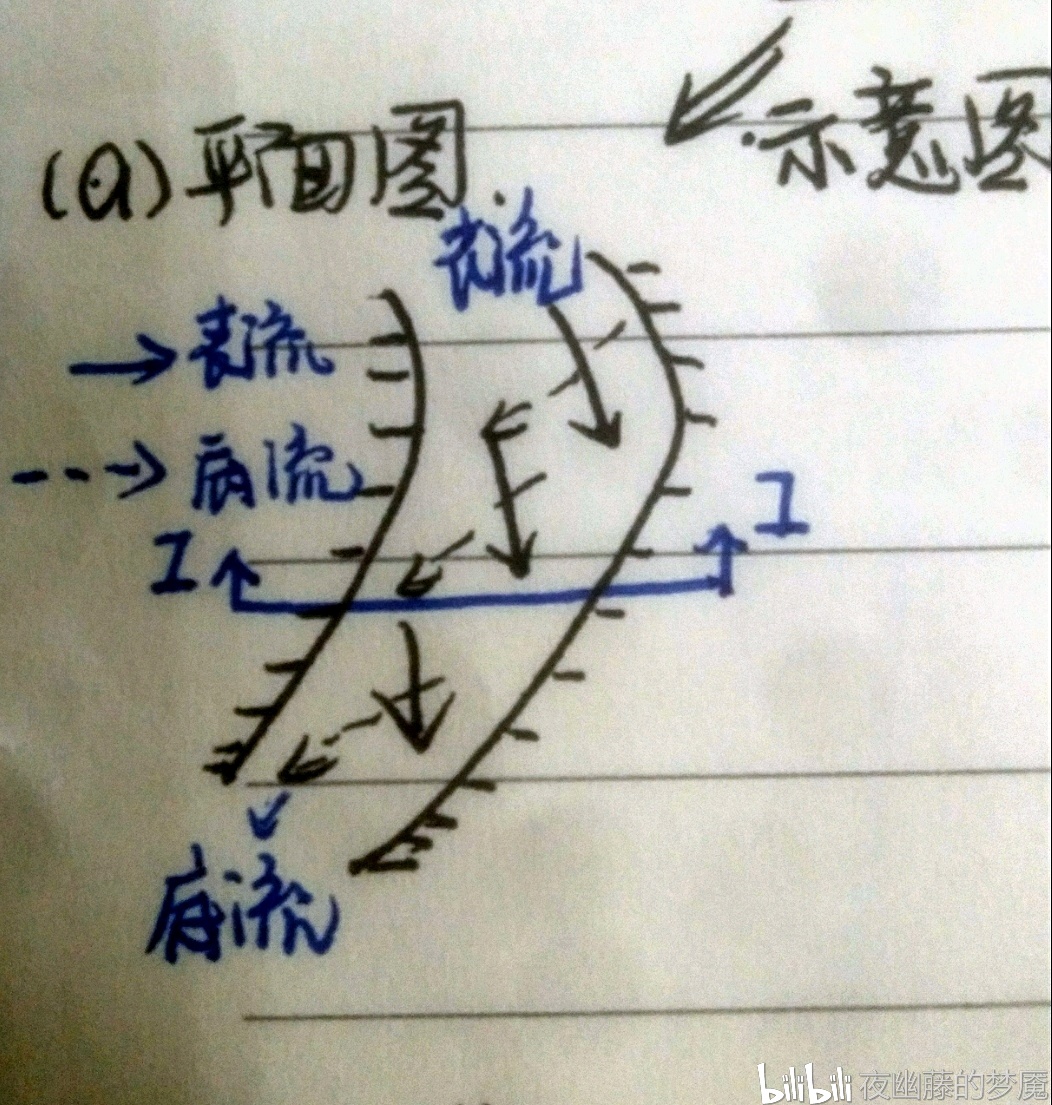 (a)平面图.
示意图
表流
表流
底流
I
I
底流
bilibili 夜幽藤的梦魇